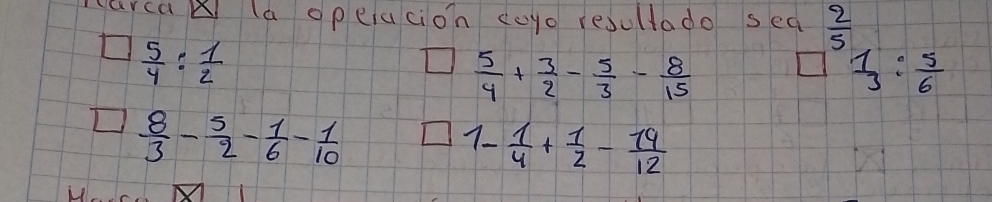 Marca ☒ la operación cuyo resultado sea 2/5
☐ 5/4 : 1/2 ☐ 5/4 + 3/2 - 5/3 - 8/15 ☐ 1/3 : 5/6
☐ 8/3 - 5/2 - 1/6 - 1/10 ☐ 1 - 1/4 + 1/2 - 14/12